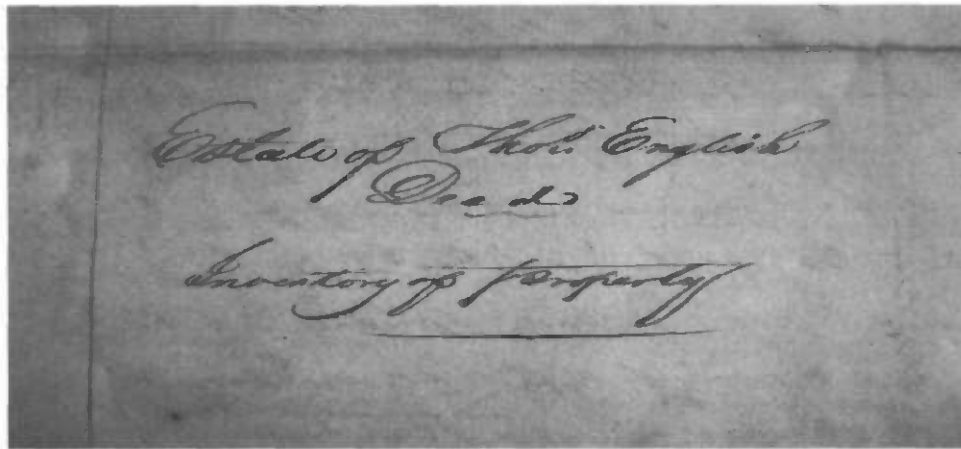 Estate of Thos English
Decd
Inventory of Property